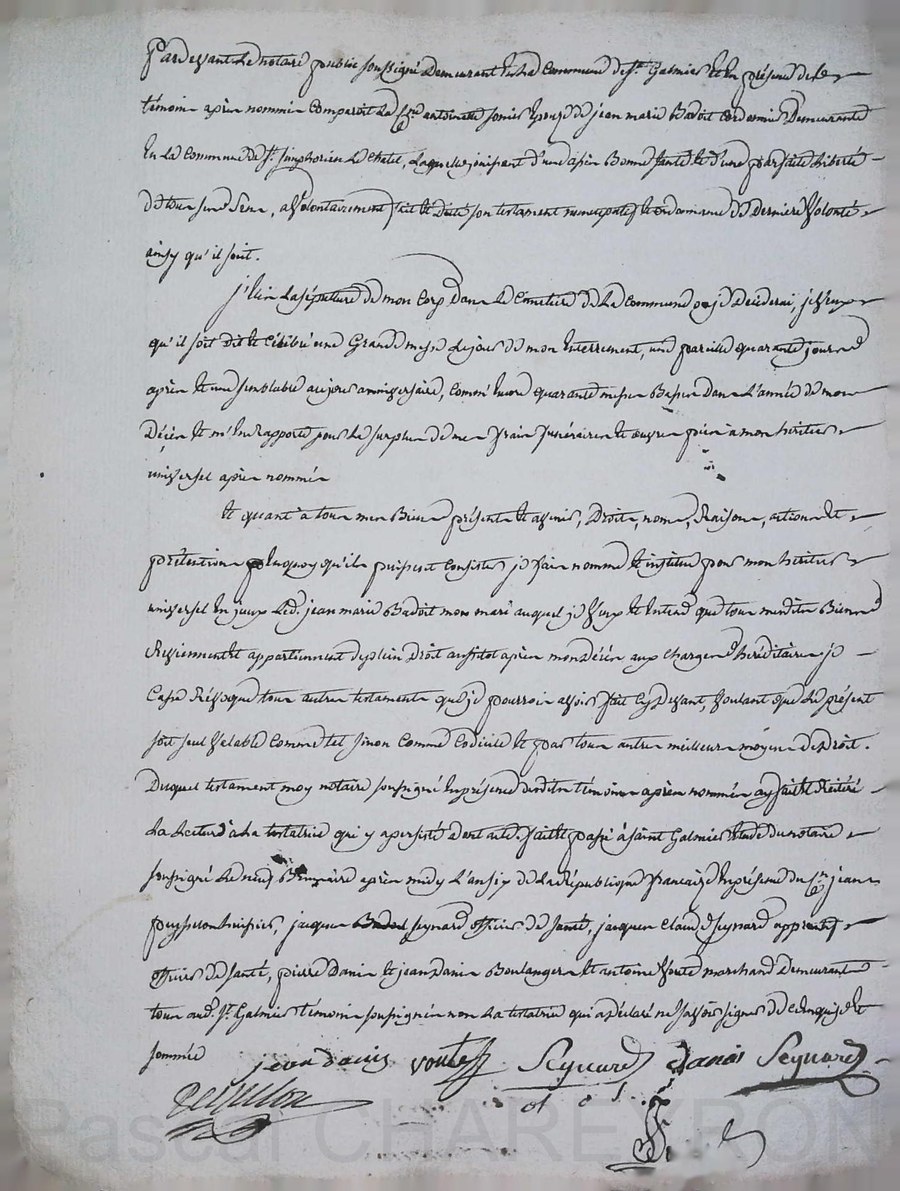 Pardevant le notaire public soussigné demeurant en la commune de St. Galmier et en présence des
témoins après nommés comparoit la Cne antoinette sonier épouze de jean marie Badoit cordonnier demeurante
en la commune de St. simphorien le chatel, laquelle jouissant d'une assés bonne santé et d'une parfaite liberté
de tous ses sens, a volontairement fait et dicté son testament nuncupatif et ordonnance de derniere volonté
ainsy qu'il suit.
j'élis la sépulture de mon corps dans le cimetiere de la commune ou je déciderai, je veux
qu'il soit dit et célébré une grande messe le jour de mon enterrement, une pareille quarante jours
après et une semblable au jour anniversaire, comm' encore quarante messes basses dans l'année de mon
décès et m'en rapporte pour le surplus de mes frais funéraires et œuvres pies à mon héritier
universel après nommé
Et quant à tous mes biens présents et avenir, droits, noms, raisons, actions et
prétentions en quoy qu'ils puissent consister je fais nomme et institue pour mon héritier
universel en iceux led. jean marie Badoit mon mari auquel je veux et entend que tous mesdits biens
reviennent et appartiennent de plein droit aussitot après mon décès aux charges héréditaires je
casse révoque tous autres testaments que je pourrois avoir fait cy devant, voulant que le présent
soit seul valable comme tel sinon comme codicile et par tous autres meilleurs moyens de droit.
Duquel testament moy notaire soussigné en présence desdits témoins après nommés ay fait et réitéré
la lecture à la testatrice qui y a persisté dont acte. fait et passé à saint Galmier étude du notaire
soussigné le neuf Brumaire après midy l'an six de la république française en présence du Cn jean
peysselon huissier, jacques seynard officier de santé, jacques claude seynard apprentif
officier de santé, pierre Danis et jean Danis boulangers et antoine voute marchand demeurants
tous aud. St. Galmier témoins soussignés non la testatrice qui a déclaré ne savoir signer de ce enquise et
sommée
jean danis voute Seynard danis Seynard
peysselon
Pascal CHAREYRON